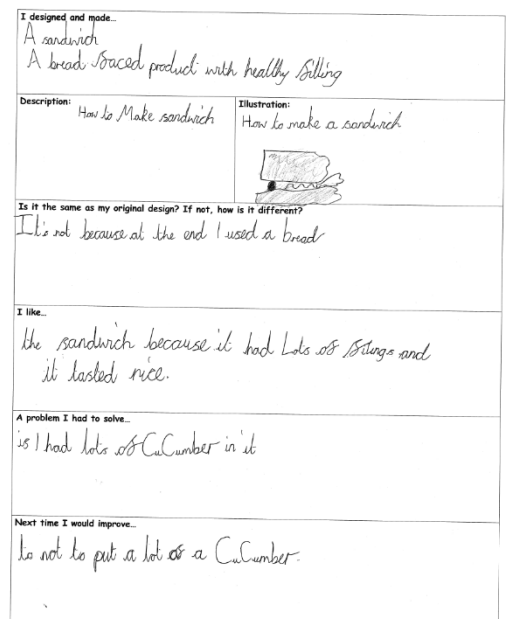 I designed and made...
A sandwich
A bread baced product with healthy filling
Description:
How to Make sandwich
Illustration:
How to make a sandwich
Is it the same as my original design? If not, how is it different?
It's not because at the end I used a bread
I like...
the sandwich because it had Lots of fillings and
it tasted nice.
A problem I had to solve...
is I had lots of CuCumber in it
Next time I would improve...
to not to put a lot of a CuCumber.